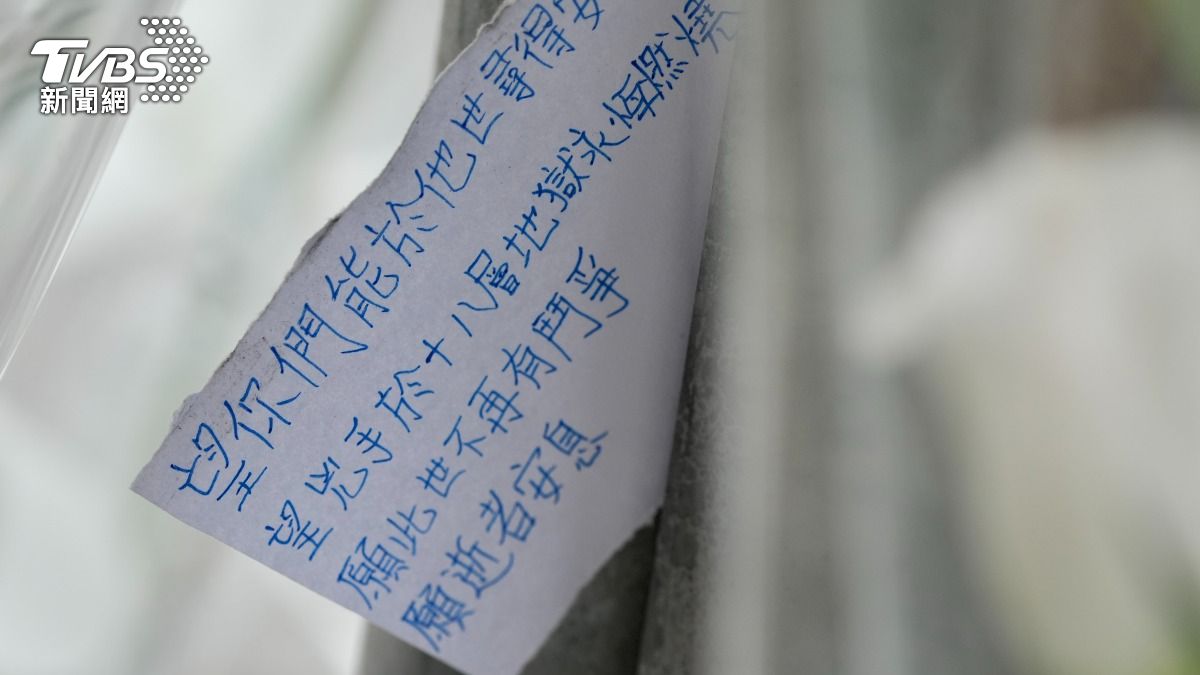 TVBS
新聞網
望你們能於他世尋得安
望兇手於十八層地獄永恆燃燒
願此世不再有鬥爭
願逝者安息